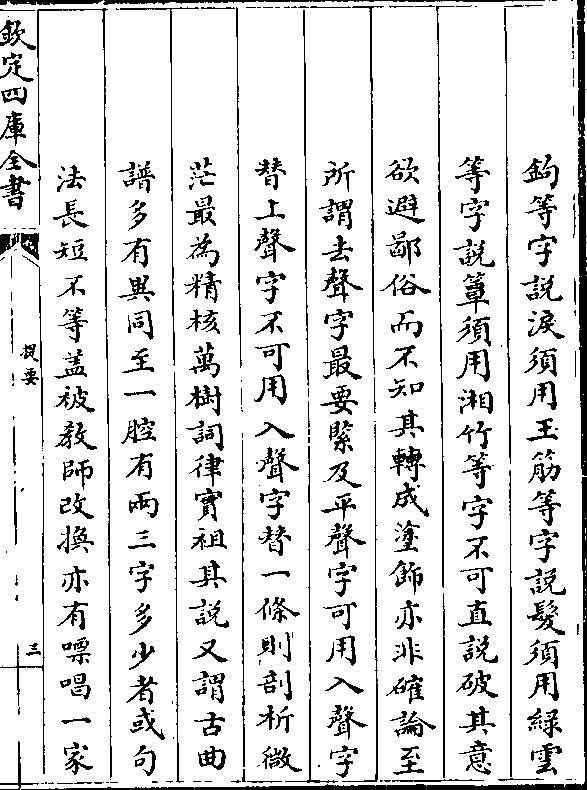 鉤等字説淚須用玉筯等字説髮須用綠雲
等字説簟須用湘竹等字不可直説破其意
欲避鄙俗而不知其轉成塗飾亦非確論至
所謂去聲字最要緊及平聲字可用入聲字
替上聲字不可用入聲字替一條則剖析微
茫最為精核萬樹詞律實祖其説又謂古曲
譜多有異同至一腔有兩三字多少者或句
法長短不等蓋被教師改換亦有嘌唱一家
欽定四庫全書
提要
三